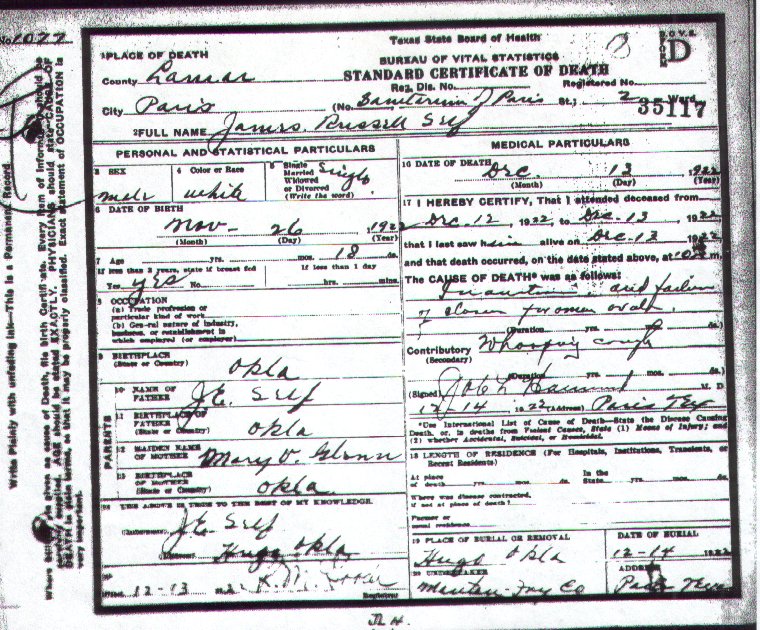 No 1022
Texas State Board of Health
BUREAU OF VITAL STATISTICS
STANDARD CERTIFICATE OF DEATH
1 PLACE OF DEATH
County Lamar
Reg. Dis. No. Registered No.
City Paris (No. Sanitarium of Paris St.; 2 Ward
35117
2 FULL NAME James Russell Self
PERSONAL AND STATISTICAL PARTICULARS
3 SEX
male
4 Color or Race
white
5 Single
Married
Widowed
or Divorced
(Write the word)
Single
6 DATE OF BIRTH
Nov- 26 1922
(Month) (Day) (Year)
7 Age yrs. mos. 18 ds.
If less than 2 years, state if breast fed If less than 1 day
Yes yes No. hrs. mins.
8 OCCUPATION
(a) Trade profession or
particular kind of work
(b) General nature of industry,
business, or establishment in
which employed (or employer)
9 BIRTHPLACE
(State or Country) Okla
PARENTS
10 NAME OF
FATHER J.E. Self
11 BIRTHPLACE OF
FATHER
(State or Country) Okla
12 MAIDEN NAME
OF MOTHER Mary V. Glenn
13 BIRTHPLACE
OF MOTHER
(State or Country) Okla
14 THE ABOVE IS TRUE TO THE BEST OF MY KNOWLEDGE
(Informant) J.E. Self
(Address) Hugo Okla
15
Filed 12-13 192
Registrar
MEDICAL PARTICULARS
16 DATE OF DEATH Dec. 13 1922
(Month) (Day) (Year)
17 I HEREBY CERTIFY, That I attended deceased from
Dec. 12, 1922, to Dec. 13 1922
that I last saw him alive on Dec. 13 1922
and that death occurred, on the date stated above, at m.
The CAUSE OF DEATH* was as follows:
and failure
of closure foramen ovale.
(Duration yrs. mos. ds.)
Contributory Whooping cough
(Secondary)
(Duration yrs. mos. ds.)
(Signed) M. D.
12-14 1922 (Address) Paris Tex
*Use International List of Cause of Death—State the Disease Causing
Death, or, in deaths from Violent Causes, State (1) Means of Injury; and
(2) whether Accidental, Suicidal, or Homicidal.
18 LENGTH OF RESIDENCE (For Hospitals, Institutions, Transients, or
Recent Residents)
At place In the
of death yrs. mos. ds. State yrs. mos. ds.
Where was disease contracted,
if not at place of death?
Former or
usual residence
19 PLACE OF BURIAL OR REMOVAL DATE OF BURIAL
Hugo Okla 12-14 1922
20 UNDERTAKER ADDRESS
Co Paris Tex
Write Plainly with unfading Ink—This is a Permanent Record